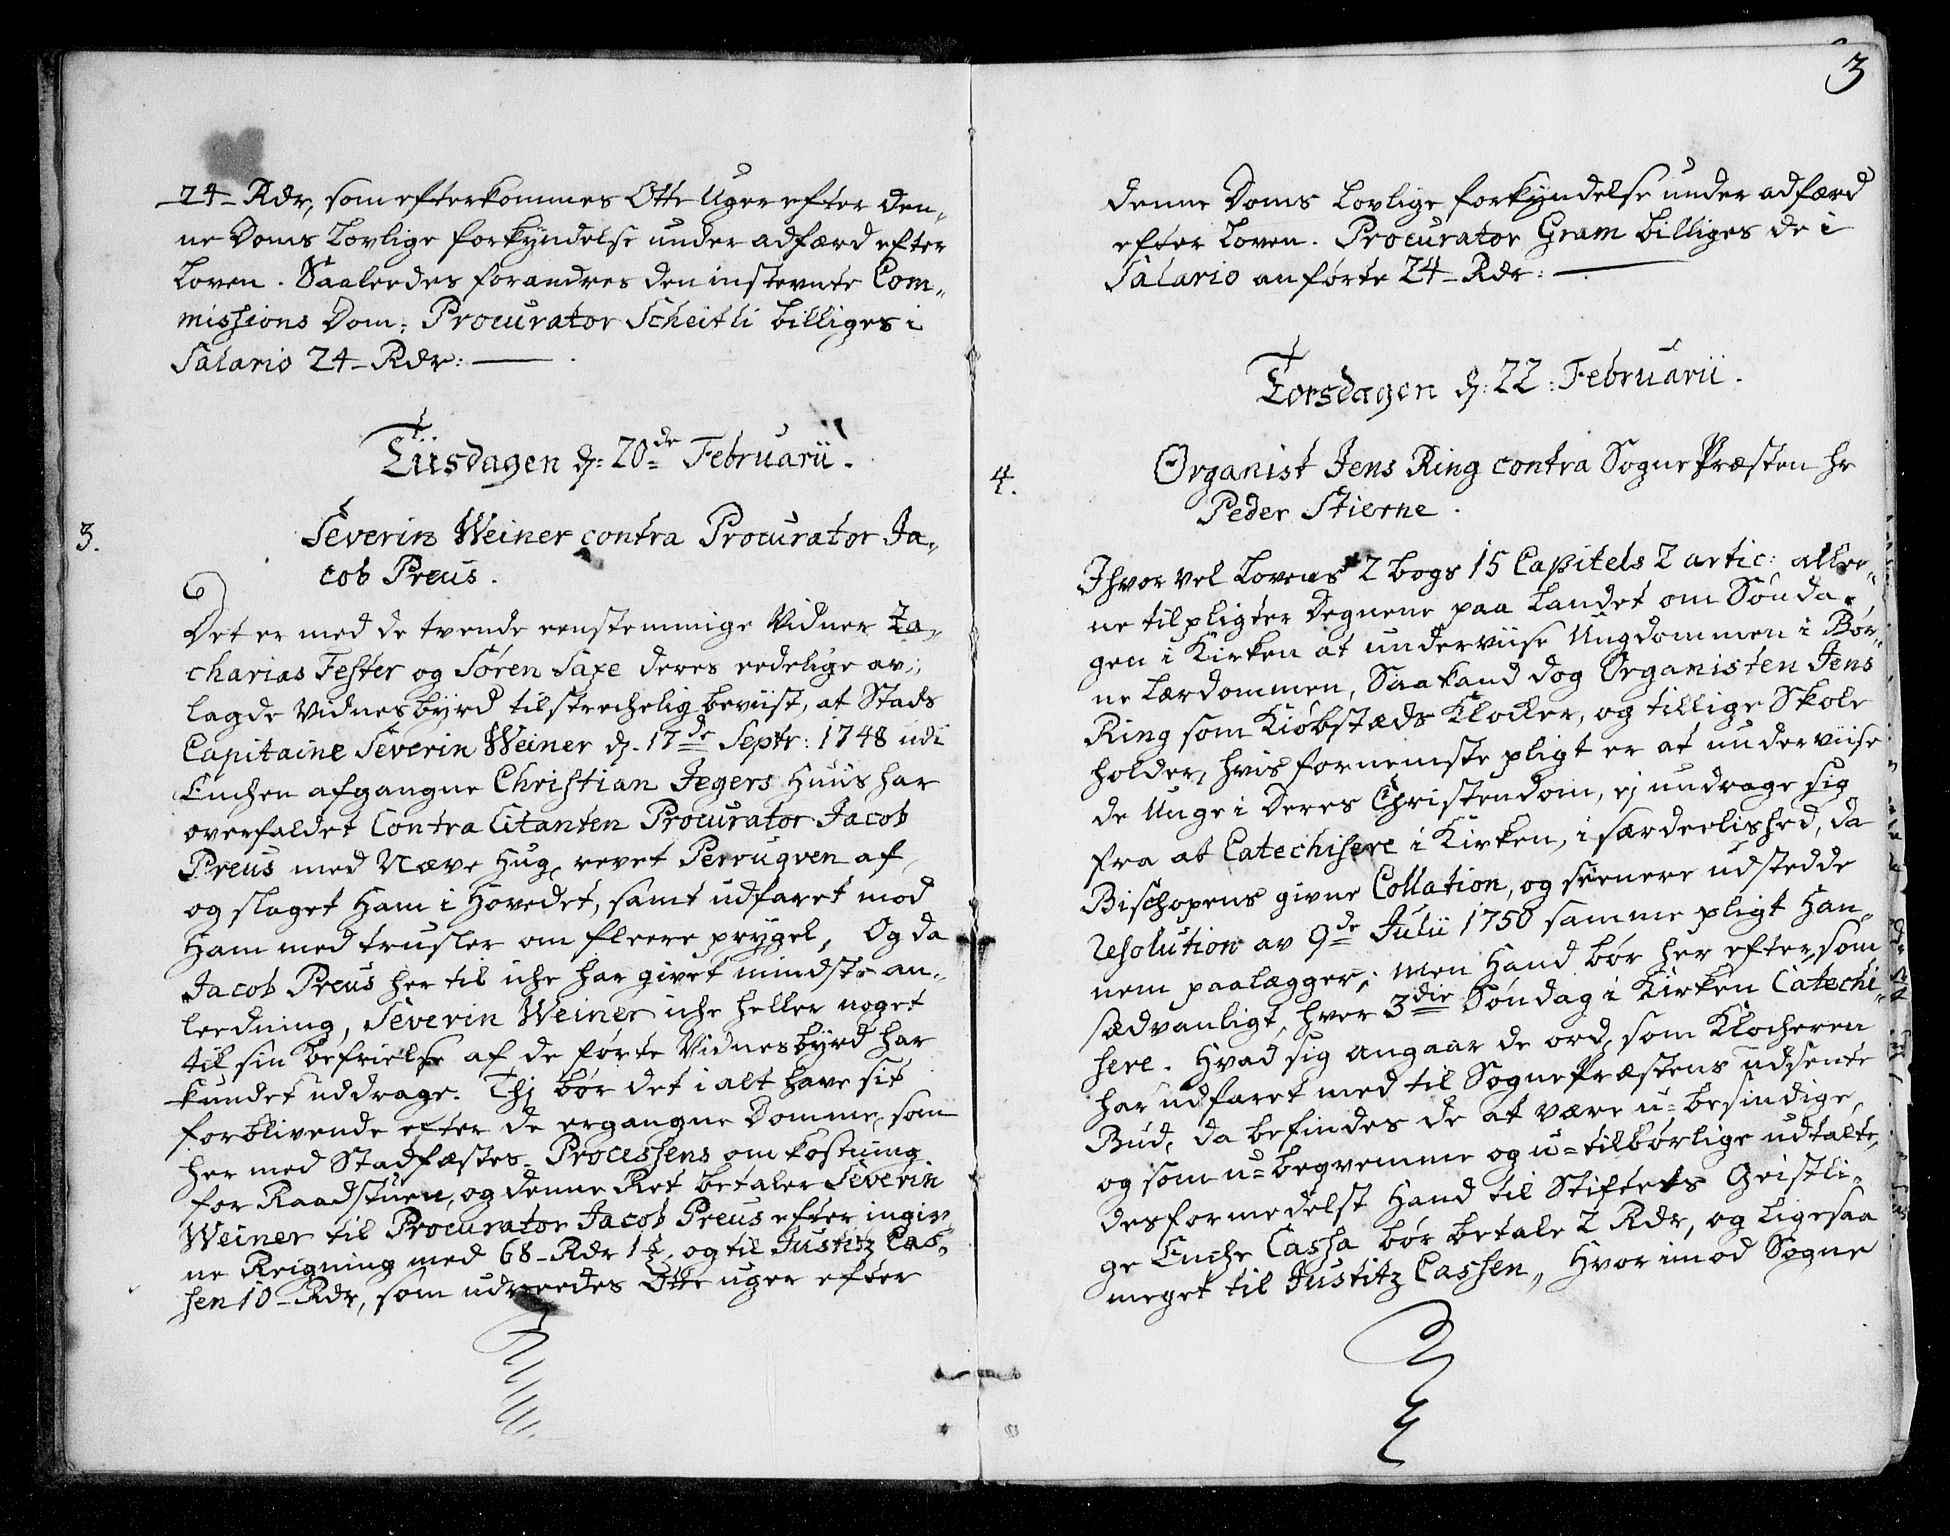 24 Rdr, som efterkommes Otte Uger efter den„
ne Doms Lovlige forkyndelse under adfærd efter
Loven. Saaleedes forandres den instevnte Com„
missions Dom: Procurator Scheitli billiges i
Salario 24 Rdr:
Tiisdagen d: 20de Februarii.
3.
Severin Weiner contra Procurator Ja„
cob Preus.
Det er med de tvende eenstemmige Vidner Za„
charias Fester og Søren Saxe deres eedelige av„
lagde Vidnesbyrd tilstrechelig beviist, at Stads
Capitaine Severin Weiner d. 17de Septr: 1748 udi
Enchen afgangne Christian Jegers Huus har
overfaldet Contra Citanten Procurator Jacob
Preus med Næve Hug, revet Perruqven af,
og slaget Ham i Hovedet, samt udfaret mod
Ham med trusler om fleere prygel, Og da
Jacob Preus her til iche har givet mindste an„
leedning, Severin Weiner iche heller noget
til sin befrielse af de førte Vidnesbyrd har
kundet uddrage. Thj bør det i alt have sit
forblivende efter de ergangne Domme, som
her med Stadfæstes. Processens omkostning
for Raadstuen, og denne Ret betaler Severin
Weiner til Procurator Jacob Preus efter ingiv„
ne Reigning med 68 Rdr 1 ½, og til Justitz Cas„
sen 10 Rdr, som udreedes Otte uger efter
3
denne Doms Lovlige forkyndelse under adfærd
efter Loven. Procurator Gram billiges de i
Salario anførte 24 Rdr:
Torsdagen d: 22: Februarii.
4.
Organist Jens Ring contra SognePræsten hr
Peder Stierne.
Ihvorvel Lovens 2 bogs 15 Capitels 2 artic: allee„
ne tilpligter Degnene paa Landet om Sønda„
gen i Kirken at underviise Ungdommen i Bør„
ne Lærdommen, Saa kand dog Organisten Jens
Ring som Kiøbstæds Klocker, og tillige Skole
holder, hvis fornemste pligt er at underviise
de Unge i Deres Christendom, ej undrage sig
fra at Catechisere i Kirken, i særdeelished, da
Bischopens givne Collation, og seenere udstedde
Resolution av 9de Julii 1750 samme pligt Han„
nem paalægger; men Hand bør her efter, som
sædvanligt, hver 3die Søndag i Kirken Catechi„
sere. Hvad sig angaar de ord, som Klocheren
har udfaret med til SognePræstens udsente
Bud, da befindes de at være u=besindige,
og som u=beqvemme og u=tilbørlige udtalte,
desformedelst Hand til Stiftets Geistli„
ge Enche Cassa bør betale 2 Rdr, og ligesaa
meget til Justitz Cassen, Hvorimod Sogne